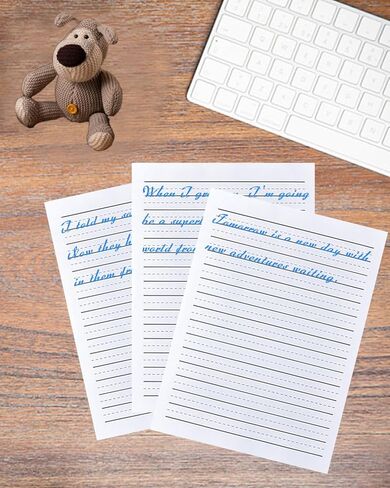 I told my so
Now they h
in them fr
When I gr I'm going
be a super
world from
Tomorrow is a new day with
new adventures waiting.